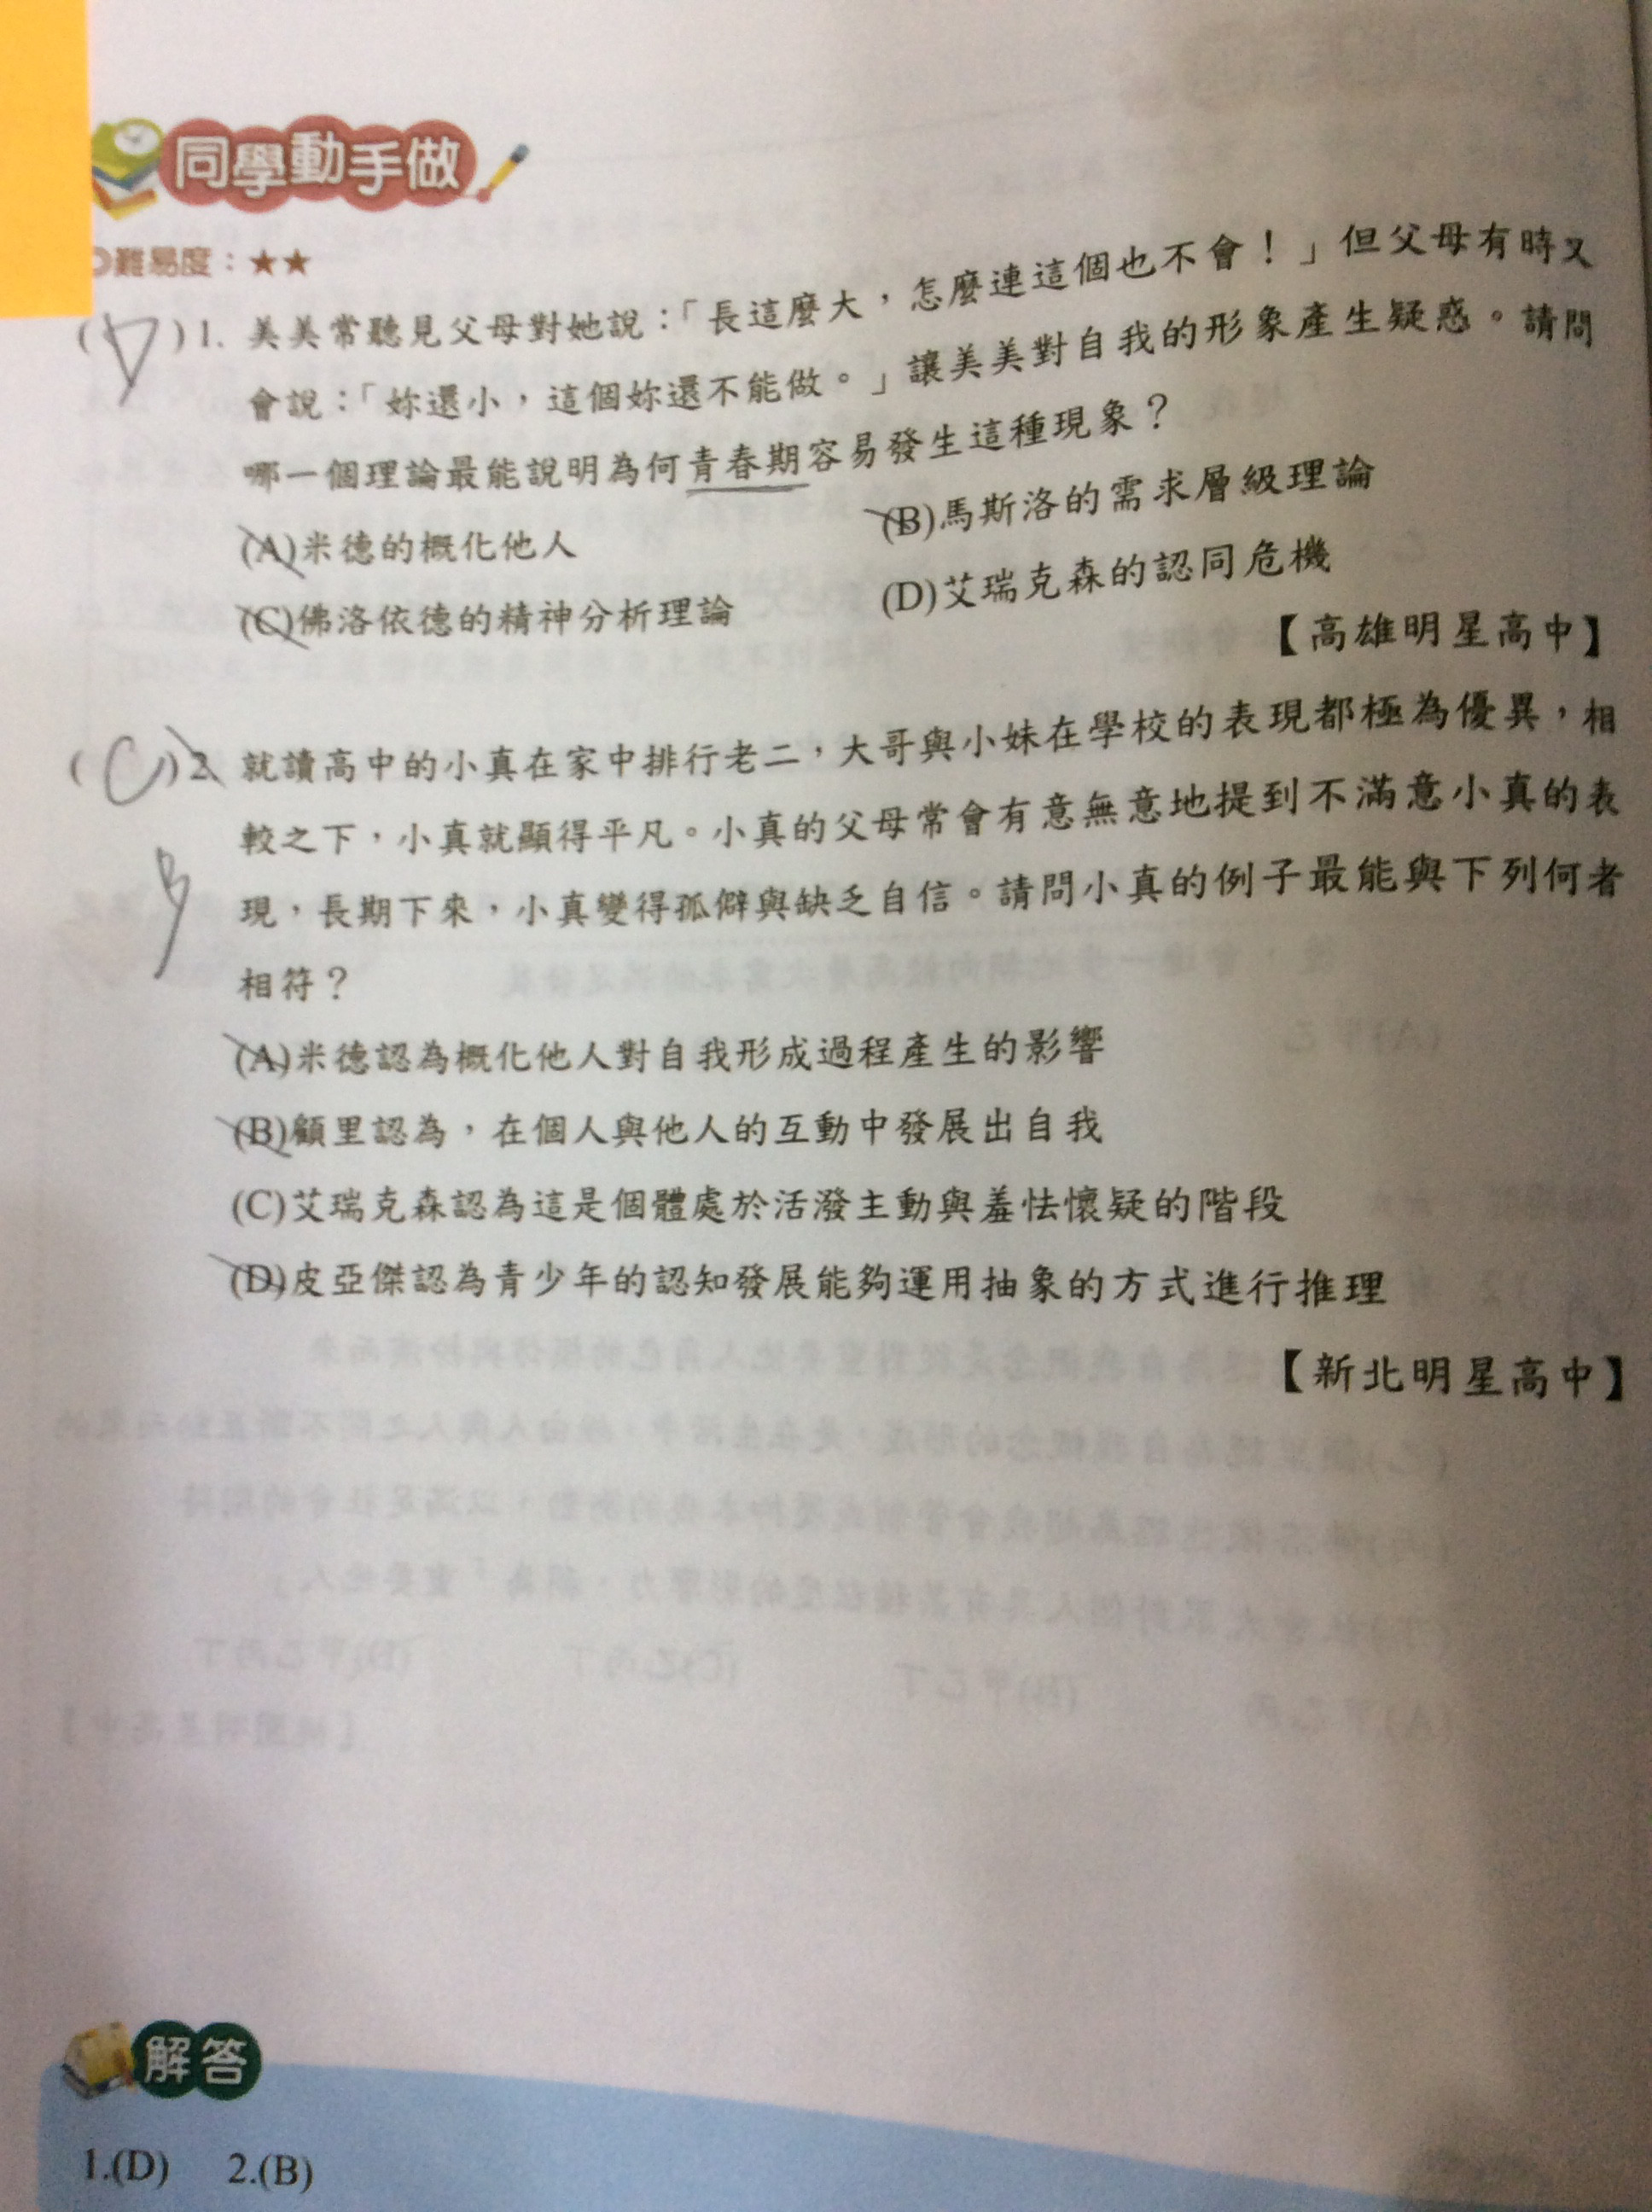 同學動手做
難易度：★★
(D)1. 美美常聽見父母對她說：「長這麼大，怎麼連這個也不會！」但父母有時又
會說：「妳還小，這個妳還不能做。」讓美美對自我的形象產生疑惑。請問
哪一個理論最能說明為何青春期容易發生這種現象？
(A)米德的概化他人 (B)馬斯洛的需求層級理論
(C)佛洛依德的精神分析理論 (D)艾瑞克森的認同危機
【高雄明星高中】
(C)2. 就讀高中的小真在家中排行老二，大哥與小妹在學校的表現都極為優異，相
較之下，小真就顯得平凡。小真的父母常會有意無意地提到不滿意小真的表
B
現，長期下來，小真變得孤僻與缺乏自信。請問小真的例子最能與下列何者
相符？
(A)米德認為概化他人對自我形成過程產生的影響
(B)顧里認為，在個人與他人的互動中發展出自我
(C)艾瑞克森認為這是個體處於活潑主動與羞怯懷疑的階段
(D)皮亞傑認為青少年的認知發展能夠運用抽象的方式進行推理
【新北明星高中】
解答
1.(D) 2.(B)